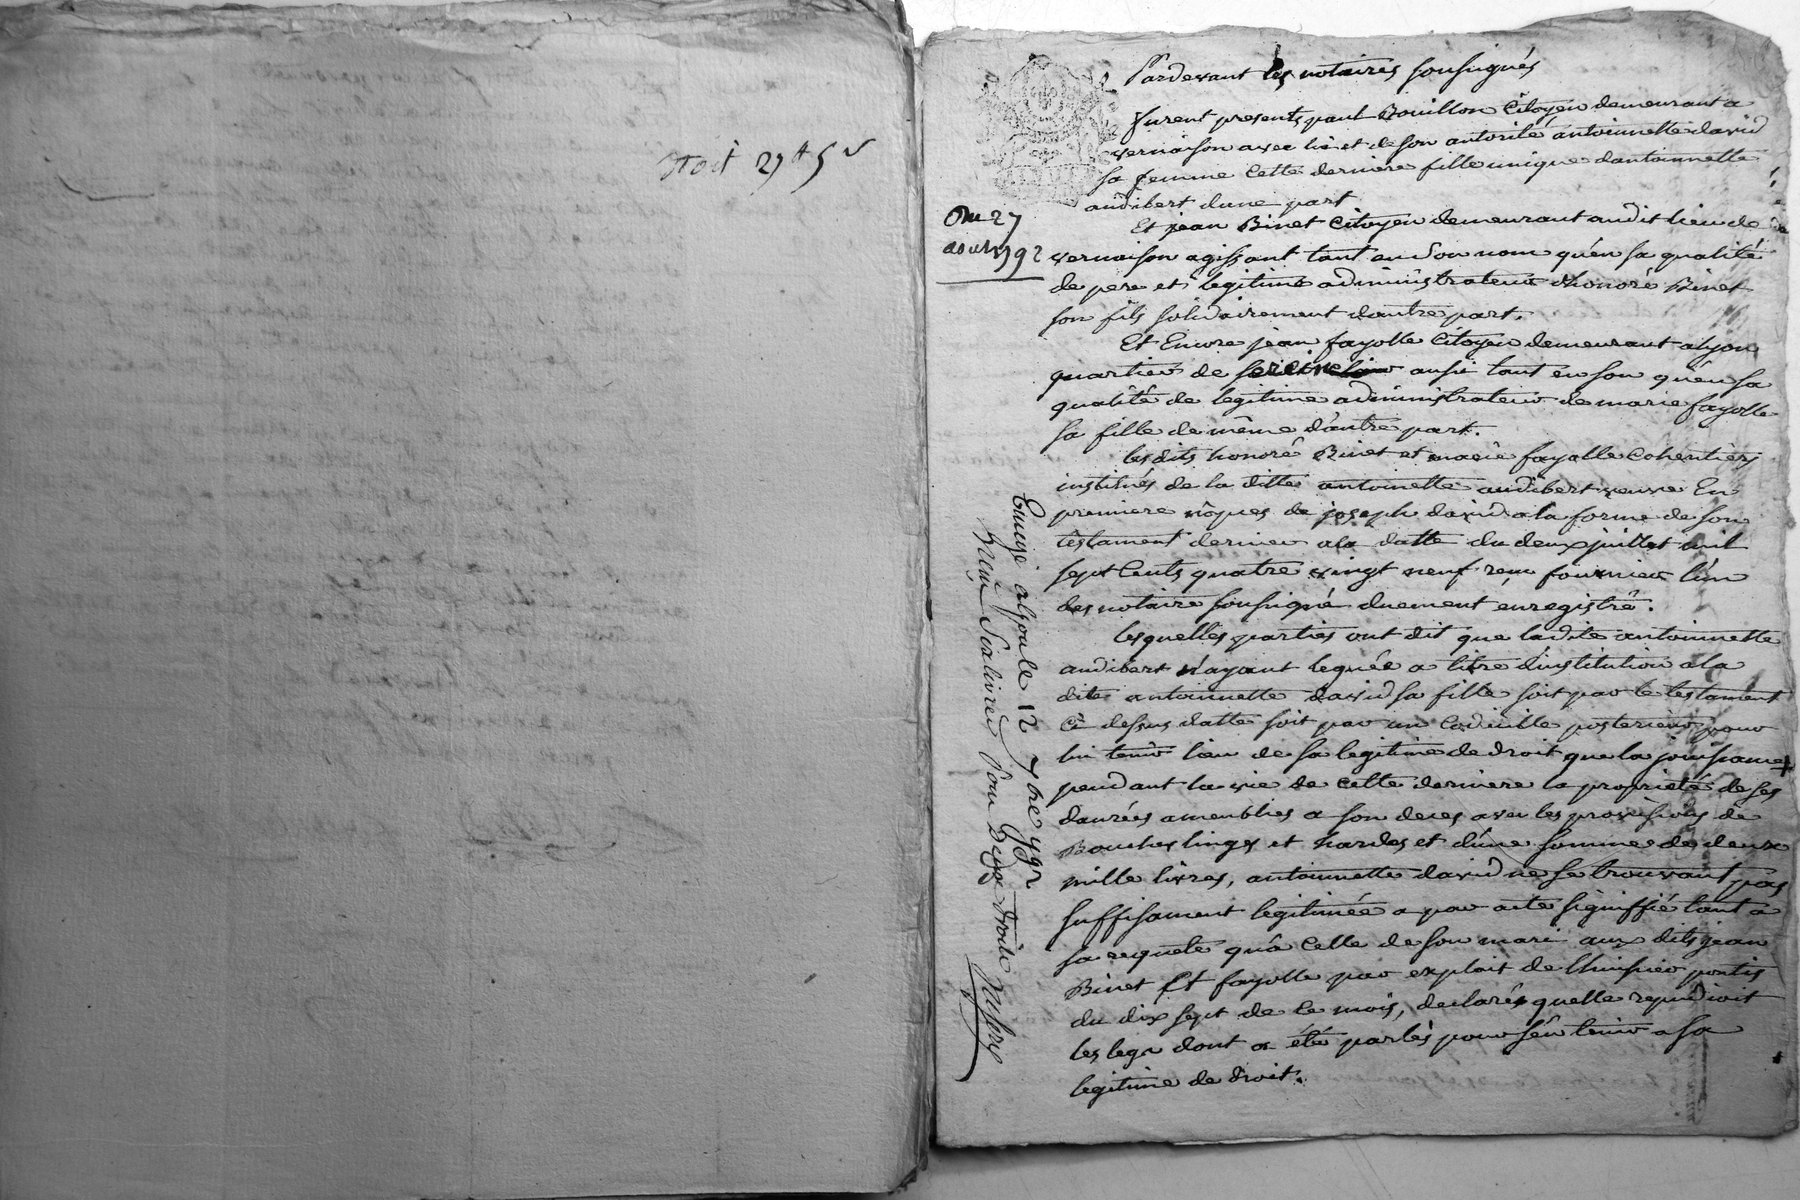 29 tt 5 s
Pardevant les notaires soussignés
furent presents paul Bouillon Citoyen demeurant a
vernaison avec lui et de son autorité antoinnette david
sa femme cette derniere fille unique dantoinnette
audibert dune part
Du 27
aoust 1792
Et jean Binet Citoyen demeurant audit lieu de
vernaison agissant tant en son nom quén sa qualité
de pere et legitime administrateur dhonoré Binet
son fils solidairement dautre part.
Et Encore jean fayolle Citoyen demeurant a lyon
quartier de aussi tant en son quén sa
qualité de legitime administrateur de marie fayolle
sa fille de même dáutre part.
les dits honoré Binet et marie fayolle cohéritiers
institués de la ditte antoinette audibert veuve En
premiere nôpces de joseph david a la forme de son
testament dernier a la datte du deux juillet mil
sept Cents quatre vingt neuf reçu fournier lún
des notaire soussigné duement enregistré.
lesquelles parties ont dit que ladite antoinnette
audibert n'ayant leguée a titre dínstitution a la
dite antoinnette david sa fille soit par le testament
Ci dessus datté soit par un Codicille posterieur pour
lui tenir lieu de sa legitime de droit que la jouissance +
pendant la vie de cette derniere la proprieté de ses
danrées ameublies a son deces avec les provisions de
Bouches linges et hardes et dúne somme de deux
mille livres, antoinnette david ne se trouvant pas
suffisament legitimée a par acte signiffié tant a
sa requete quá celle de son mari aux dits jean
Binet Et fayolle par exploit de lhuissier pontis
du dix sept de ce mois, declarés quelle repudioit
les legs dont a été parlés pour sén tenir a sa
legitime de droit.
7bre 1792